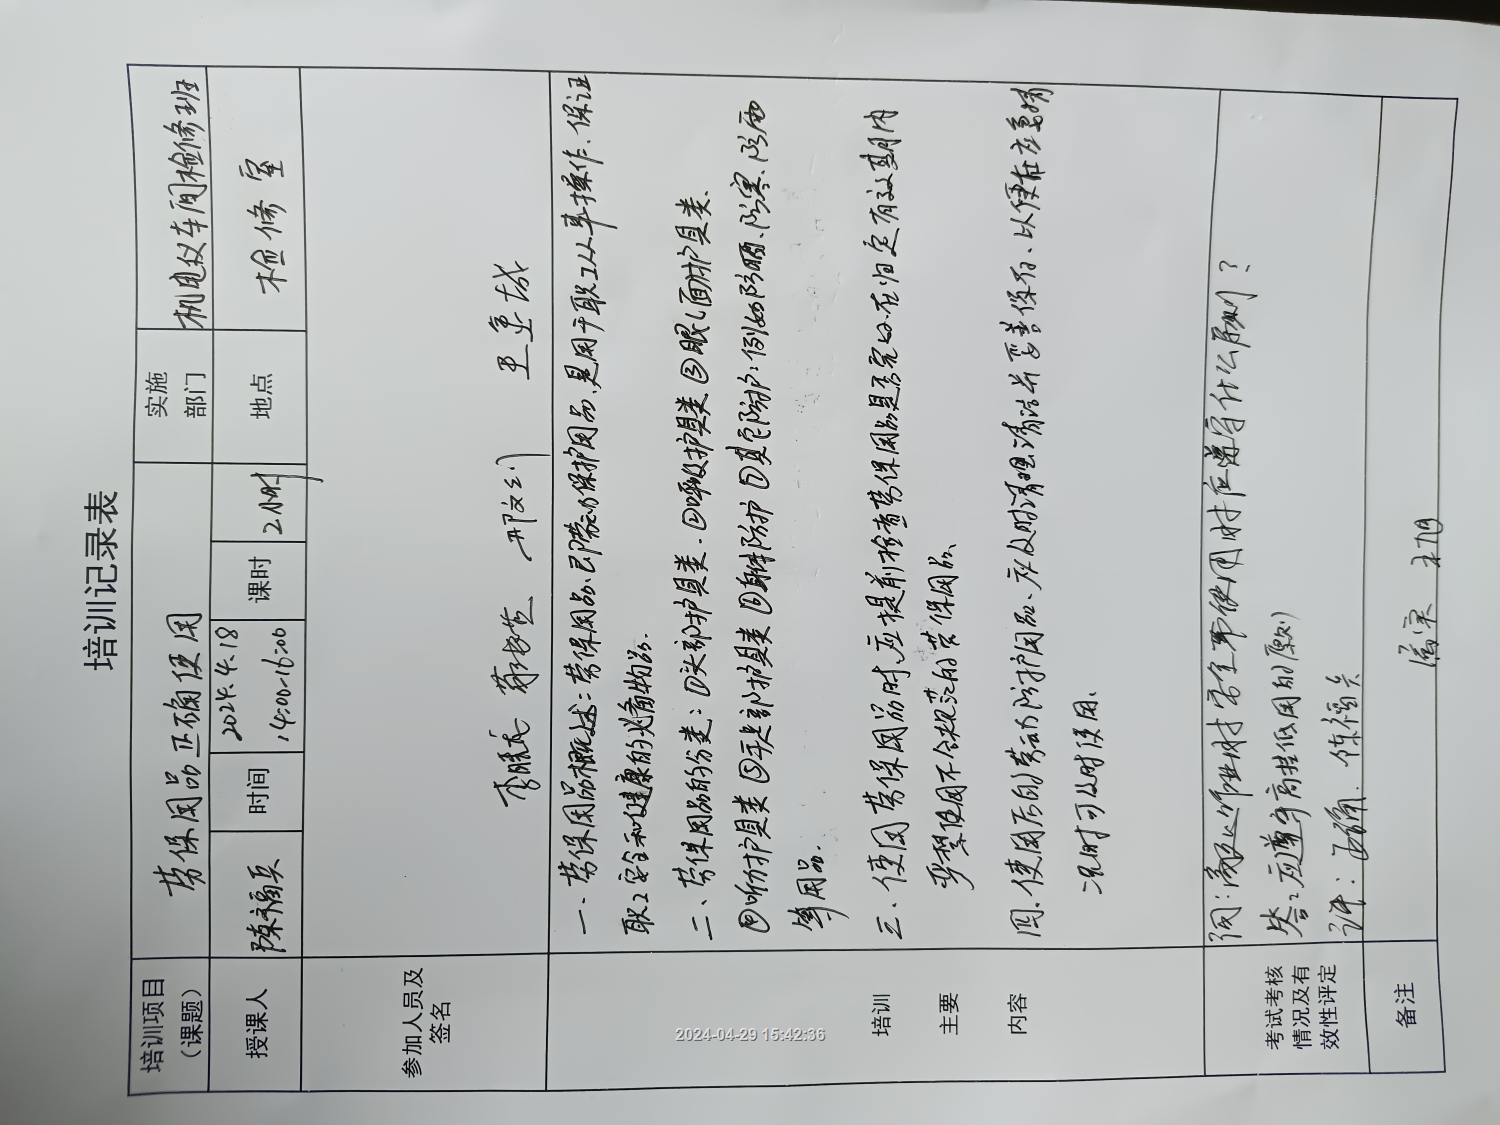 培训记录表
培训项目（课题） 劳保用品正确使用 实施部门 机电仪车间检修班
授课人 陈福贞 时间 2024.4.18 14:00-16:00 课时 2小时 地点 检修室
参加人员及签名 李胜长
培训主要内容
一、劳保用品概述：劳保用品、即劳动保护用品、是用于职工从事操作、保证
职工安全和健康的必需物品.
二、劳保用品的分类：①头部护具类、②呼吸护具类 ③眼(面)护具类、
④听力护具类 ⑤手足部护具类 ⑥身体防护 ⑦其它防护：例如防晒、防寒、防雨
等用品.
三、使用劳保用品时、应提前检查劳保用品是否完好、在归定有效期内
严禁使用不合规范的劳保用品、
四、使用后的劳动防护用品、应及时清理、清洁并妥善保存、以便在应急情
况时可及时使用、
考试考核情况及有效性评定
问：高处作业时安全带使用时应遵守什么原则？
答：应遵守高挂低用的原则
评：正确. 陈福贞
备注
2024-04-29 15:42:36